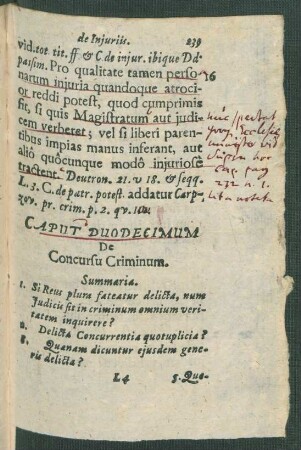 de Injuriis. 239
vid. tot. tit. ff & C de injur. ibique Dd.
passim. Pro qualitate tamen perso- 36
narum injuria quandoque atroci-
or reddi potest, quod cumprimis
fit, si quis Magistratum aut judi-
cem verberet; vel si liberi paren-
tibus impias manus inferant, aut
aliô quôcunque modô injuriose
tractent. Deutron. 21. v 18. & seqq.
L. 3. C. de patr. potest. addatur Carp-
zov. pr. crim. p. 2. qv.
CAPUT DUODECIMUM
De
Concursu Criminum.
Summaria.
1. Si Reus plura fateatur delicta, num
Judicis sit in criminum omnium veri-
tatem inquirere?
2. Delicta Concurrentia quotuplicia?
3. Quænam dicuntur ejusdem gene-
ris delicta?
L4 5. Quæ-